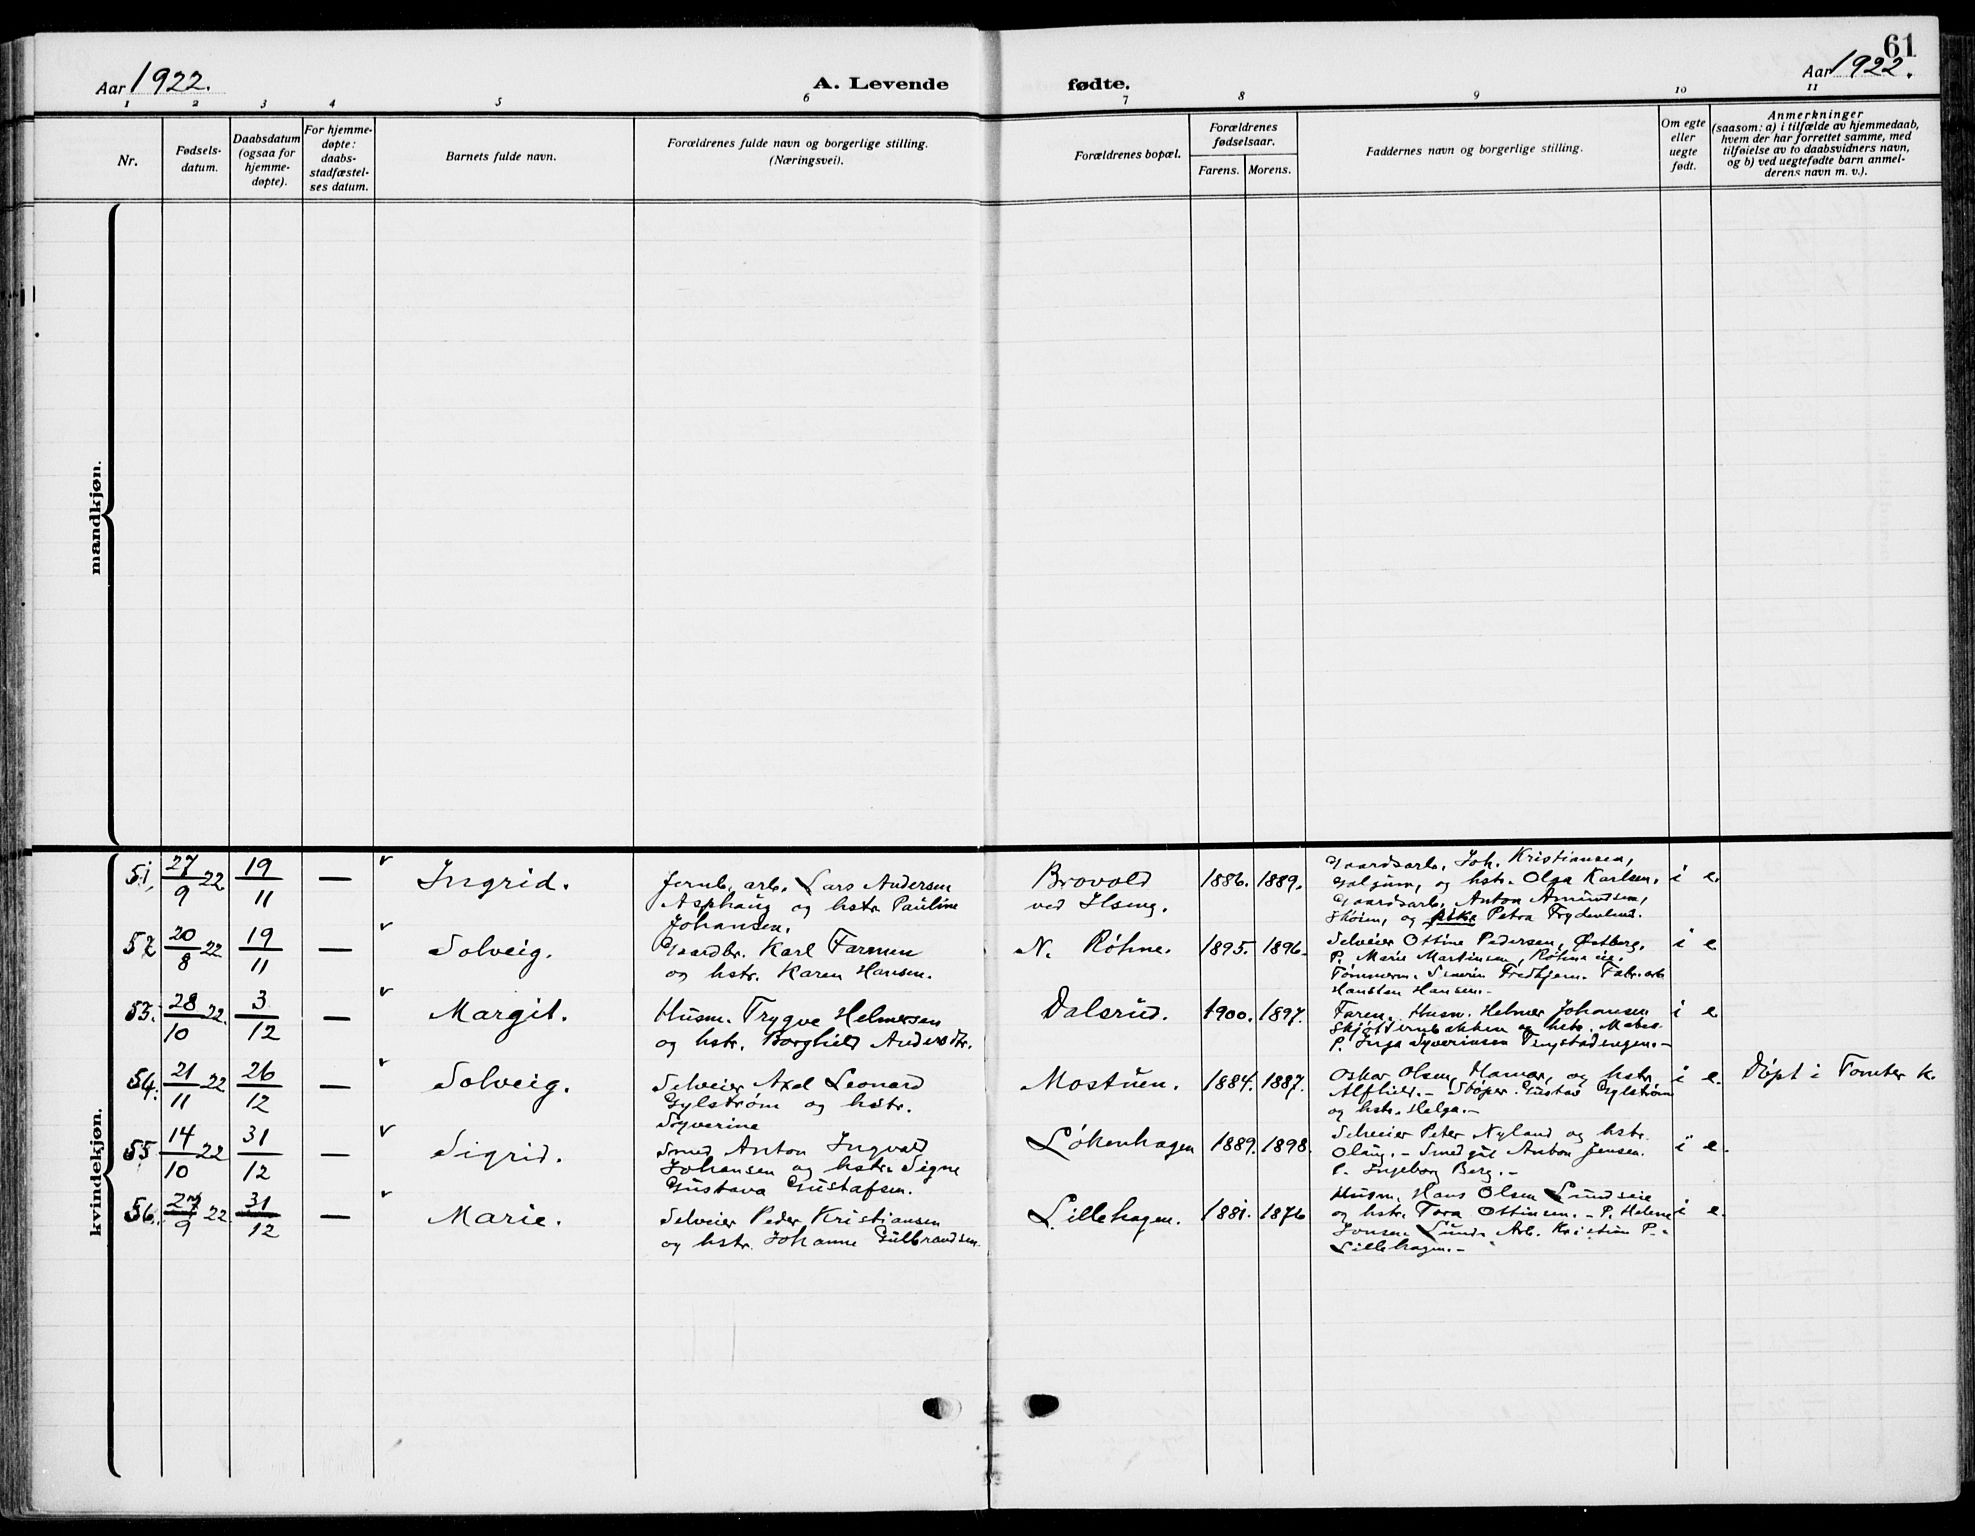 61
Aar 1922.
A. Levende fødte.
Aar 1922.
1 2 3 4 5 6 7 8 9 10 11
Nr.
Fødsels-
datum.
Daabsdatum
(ogsaa for
hjemme-
døpte).
For hjemme-
døpte:
daabs-
stadfæstel-
ses datum.
Barnets fulde navn.
Forældrenes fulde navn og borgerlige stilling.
(Næringsvei).
Forældrenes bopæl.
Forældrenes
fødselsaar.
Farens. Morens.
Faddernes navn og borgerlige stilling.
Om egte
eller
uegte
født.
Anmerkninger
(saasom: a) i tilfælde av hjemmedaab,
hvem der har forrettet samme, med
tilføielse av to daabsvidners navn,
og b) ved uegtefødte barn anmel-
derens navn m. v.).
mandkjøn.
kvindekjøn.
51. 27/9 22 19/11 — Ingrid.
Jernb. arb. Lars Andersen
Asphaug og hstr. Pauline
Johansen.
Brovold
ved Ilseng.
1886. 1889.
Gaardsarb. Joh. Kristiansen,
og hstr. Olga Karlsen.
Gaardsarb. Anton Amundsen,
og pike Petra Frydenlund.
i e.
52 20/8 22 19/11 — Solveig.
Gaardbr. Karl Farmen
og hstr. Karen Hansen.
N. Røhne.
1895. 1896.
Selveier Ottine Pedersen, Østberg.
P. Marie Martinsen, Røhne eie.
Tømmerm. Fredhjem. Fabr. arb.
Hansen.-
i e
53. 28/10 22. 3/12 — Margit.
Husm. Trygve Helmersen
og hstr. Borghild Andersdtr.
Dalsrud.
1900. 1897.
Faren. Husm. Helmer Johansen
og hstr.
P. Inga Syverinsen
i e
54. 21/11 22 26/12 — Solveig.
Selveier Axel Leonard
Gylstrøm og hstr.
Syverine
Mostuen.
1884. 1887.
Oskar Olsen, Hamar, og hstr.
Alfhild.- Støper Gustav Gylstrøm
og hstr. Helga.-
i e.
Døpt i Tomter k.
55 14/10 22 31/12 — Sigrid.
Smed Anton Ingvald
Johansen og hstr. Signe
Gustava Gustafsen.
Løkenhagen
1889. 1898.
Selveier Peter Nyland og hstr.
Olaug.- Anton Jensen.
P. Ingeborg Berg.-
i e.
56. 27/9 22. 31/12 — Marie.
Selveier Peder Kristiansen
og hstr. Johanne Gulbrandsen.
Lillehagen.
1881. 1876
Husm. Hans Olsen Lundseie
og hstr. Tora Ottinsen.- P. Helene
Jonsen Lund. Arb. Kristian P.
Lillehagen.-
i e.